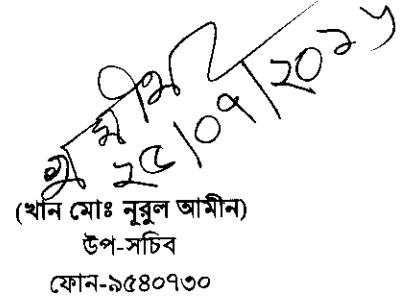 ২৫/০৭/২০১৬
(খান মোঃ নূরুল আমীন)
উপ-সচিব
ফোন-৯৫৪০৭৩০